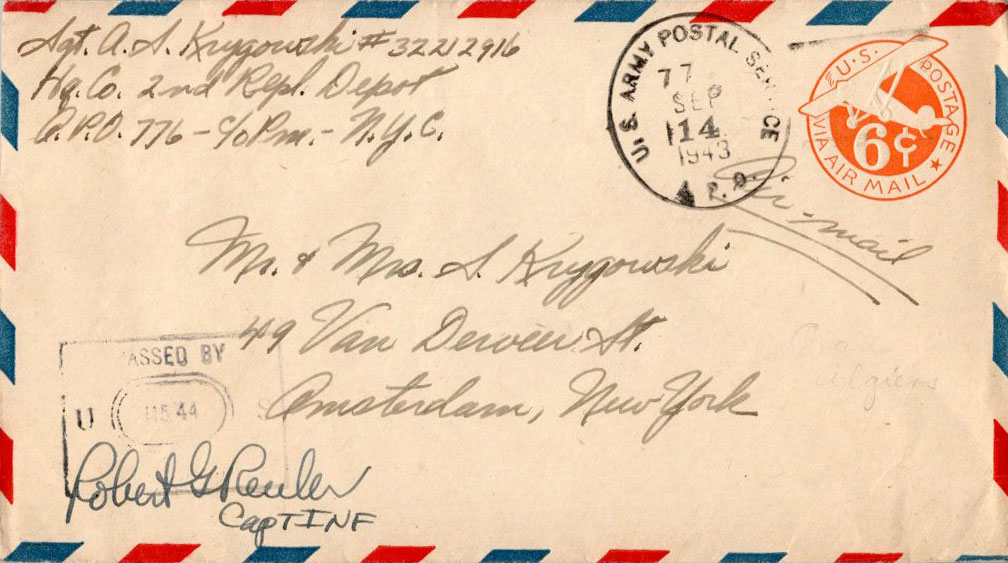 Sgt. A. S. Krygowski #32212916
Hq. Co. 2nd Repl. Depot
A.P.O. 776 - c/o P.m. - N.Y.C.
U.S. ARMY POSTAL SERVICE
SEP
14
1943
A.P.O.
U.S. POSTAGE
6¢
VIA AIR MAIL
Air-mail
Mr. & Mrs. S. Krygowski
49 Van Derveer St.
Amsterdam, New York
Algiers
ASSED BY
U S
Robert G
Capt INF